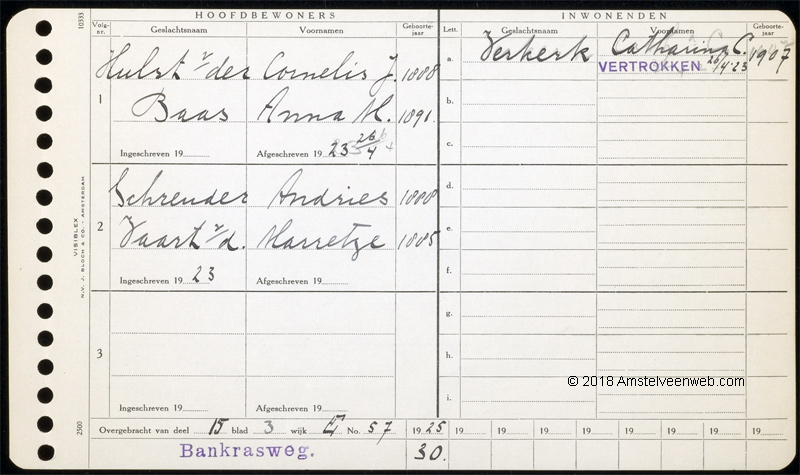 HOOFDBEWONERS
INWONENDEN
10333
Volg-nr.
Geslachtsnaam
Voornamen
Geboorte-jaar
Lett.
Geslachtsnaam
Voornamen
Geboorte-jaar
1
Hulst v/der Cornelis J. 1888
Baas Anna M. 1891.
Ingeschreven 19
Afgeschreven 19 23 26/4
2
Schreuder Andries 1888
Vaart v/d. Marretje 1885
Ingeschreven 19 23
Afgeschreven 19
3
Ingeschreven 19
Afgeschreven 19
a. Verkerk Catharina C. 1907
VERTROKKEN 26/4-23
b.
c.
d.
e.
f.
g.
h.
i.
VISIBLEX
N.V. J. BLOCH & CO. - AMSTERDAM
2500
Overgebracht van deel 15 blad 3 wijk E No. 57
19 25 19 19 19 19 19 19 19 19
Bankrasweg.
30.
© 2018 Amstelveenweb.com